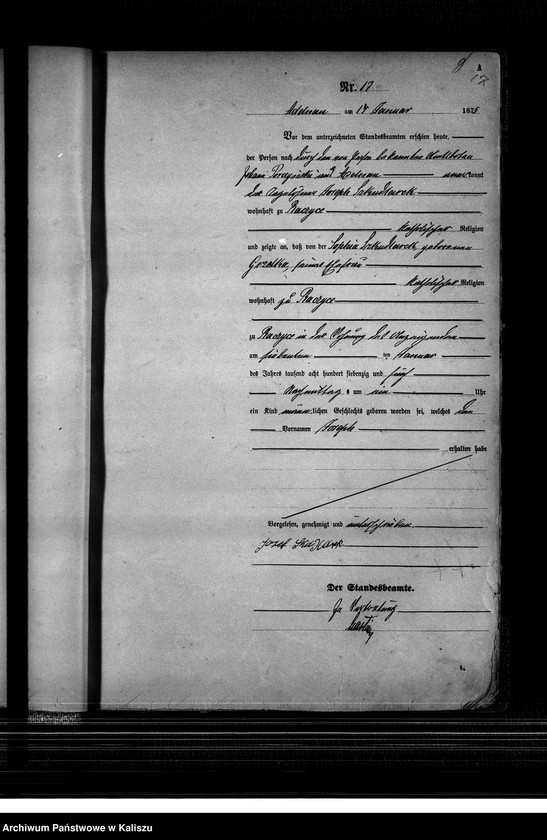 A
17
Nr. 17
Adelnau am 18 Januar 1875
Vor dem unterzeichneten Standesbeamten erschien heute,
der Person nach durch den von Person bekannten Amtsboten
Johann und Adelnau anerkannt
der Tagelöhner Joseph Szkudlarek
wohnhaft zu Raczyce
katholischer Religion
und zeigte an, daß von der Sophia Szkudlarek geborenen
Gorzelka, seiner Ehefrau
katholischer Religion
wohnhaft zu Raczyce
zu Raczyce in der Wohnung des Anzeigenden
am siebenten ten Januar
des Jahres tausend acht hundert siebenzig und fünf
Nachmittag s um ein Uhr
ein Kind männlichen Geschlechts geboren worden sei, welches den
Vornamen Joseph
erhalten habe
Vorgelesen, genehmigt und unterschrieben
Jozef
Der Standesbeamte.
In Vertretung
Archiwum Państwowe w Kaliszu